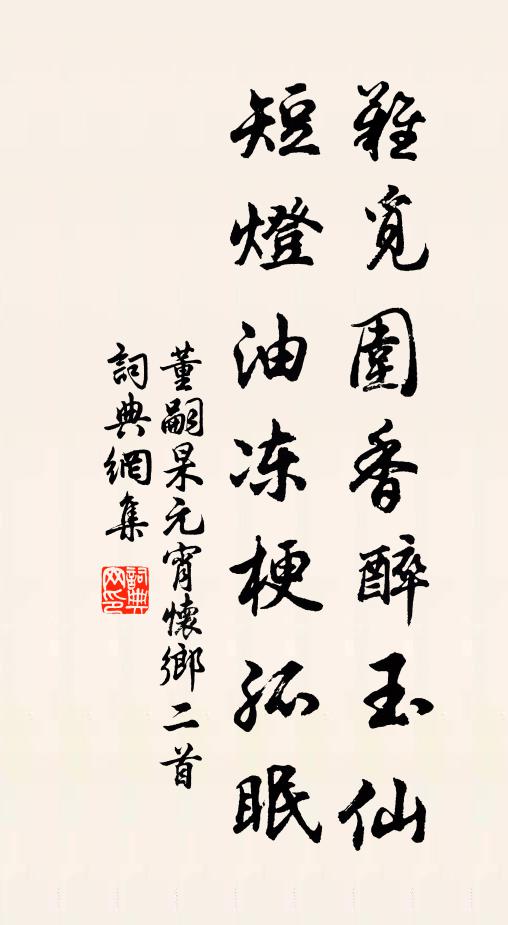 難覓圍香醉玉仙
短燈油冻梗孤眠
董嗣杲元宵懷鄉二首
詞典網集
詞典
网印